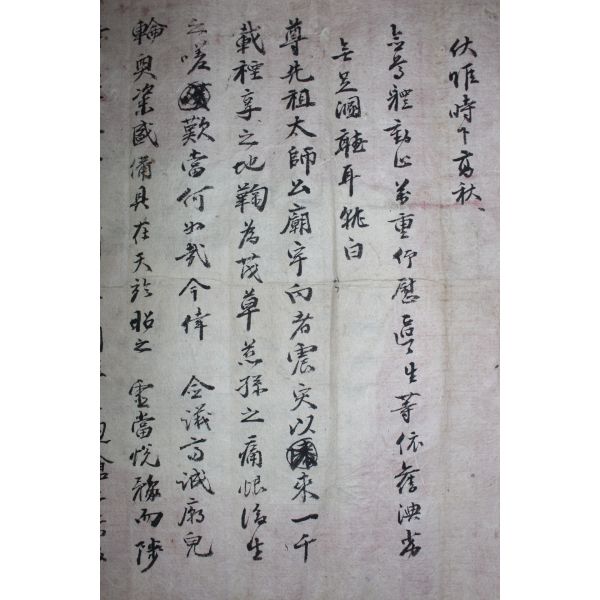 伏惟時下高秋
僉尊體動止萬重仰慰區區生等依舊淟劣
無足溷聽耳就白
尊先祖太師公廟宇向者震灾以來一千
載禋享之地鞠為茂草慈孫之痛恨後生
之嗟歎當何如哉今倖 僉議高誠廓皃
輪奐粢盛備具在天於昭之 靈當悅豫而陟